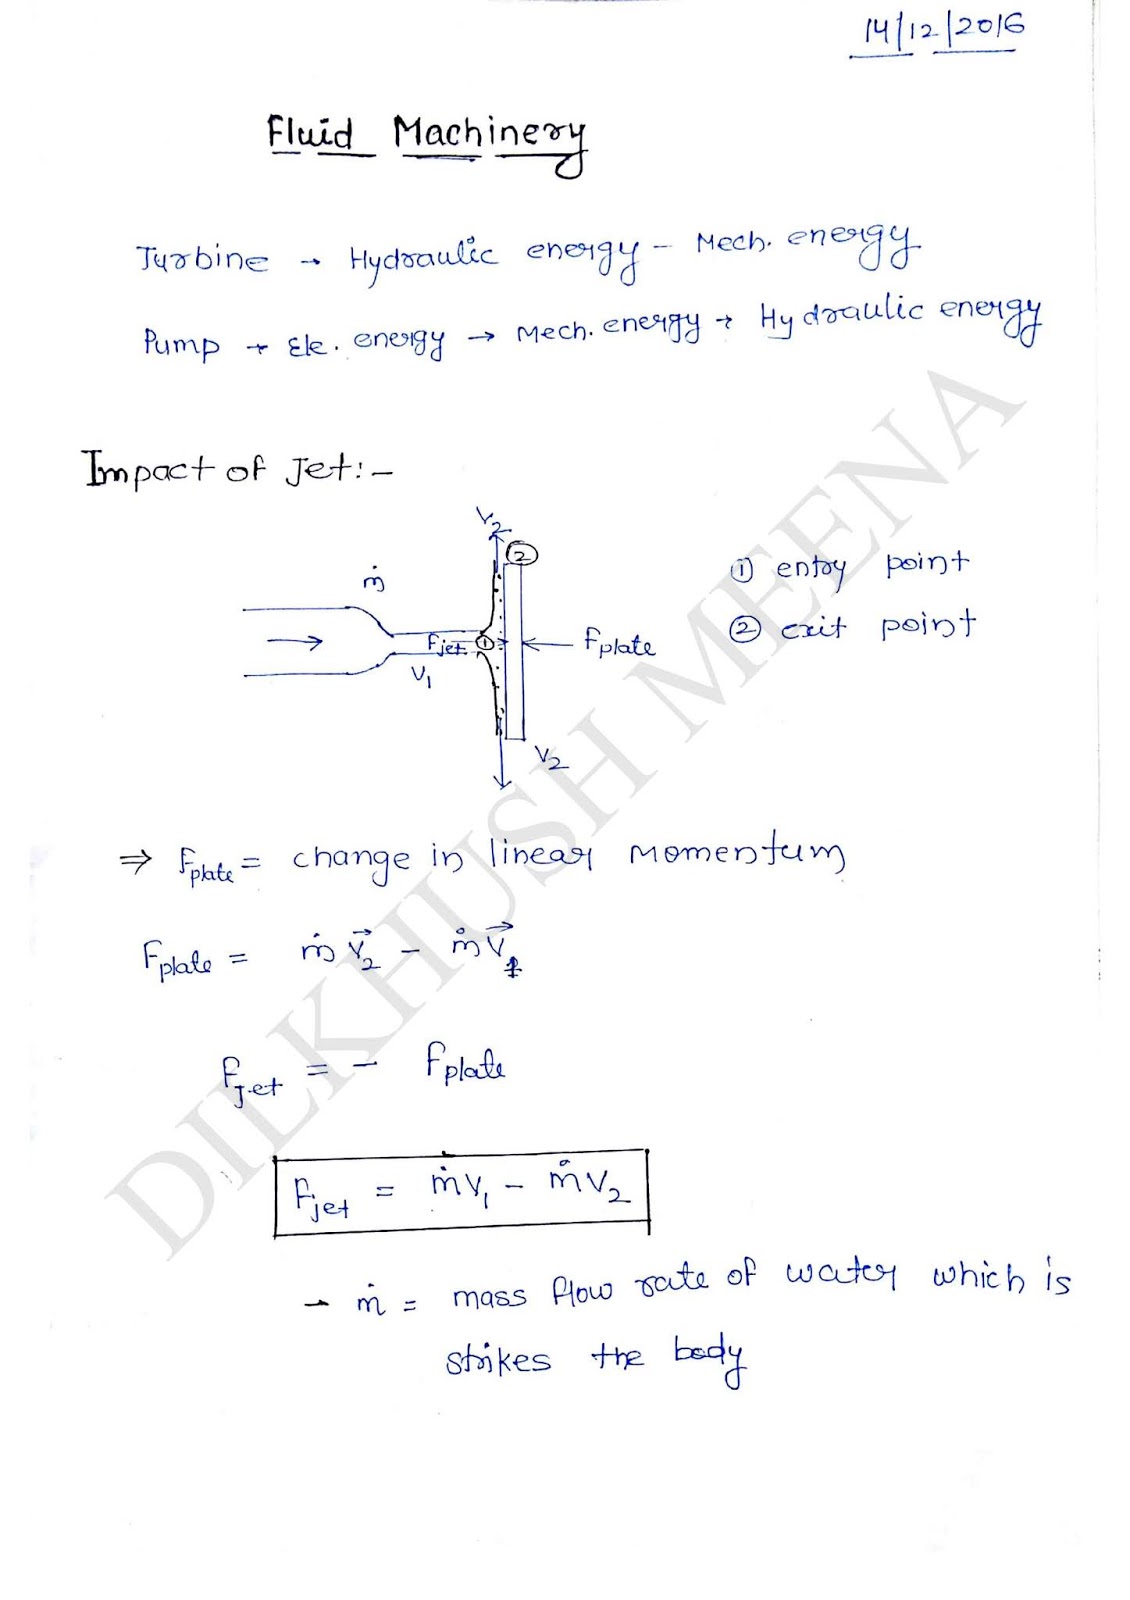 14/12/2016
Fluid Machinery
Turbine → Hydraulic energy – Mech. energy
Pump → Ele. energy → Mech. energy → Hydraulic energy
Impact of Jet:–
V2
②
ṁ
① entry point
② exit point
Fjet ①
Fplate
V1
V2
⇒ Fplate = change in linear momentum
Fplate = ṁ V⃗2 – ṁ V⃗1
Fjet = – Fplate
Fjet = ṁV1 – ṁV2
– ṁ = mass flow rate of water which is
strikes the body
DILKHUSH MEENA